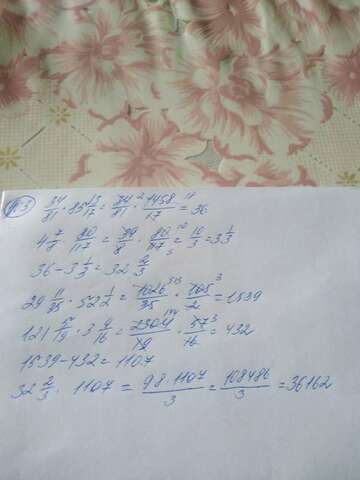 №3 34/81 · 85 13/17 = 34/81 · 1458/17 = 36
4 7/8 · 80/117 = 39/8 · 80/117 = 10/3 = 3 1/3
36 - 3 1/3 = 32 2/3
29 11/35 · 52 1/2 = 1026/35 · 105/2 = 1539
121 5/19 · 3 9/16 = 2304/19 · 57/16 = 432
1539 - 432 = 1107
32 2/3 · 1107 = 98 · 1107/3 = 108486/3 = 36162